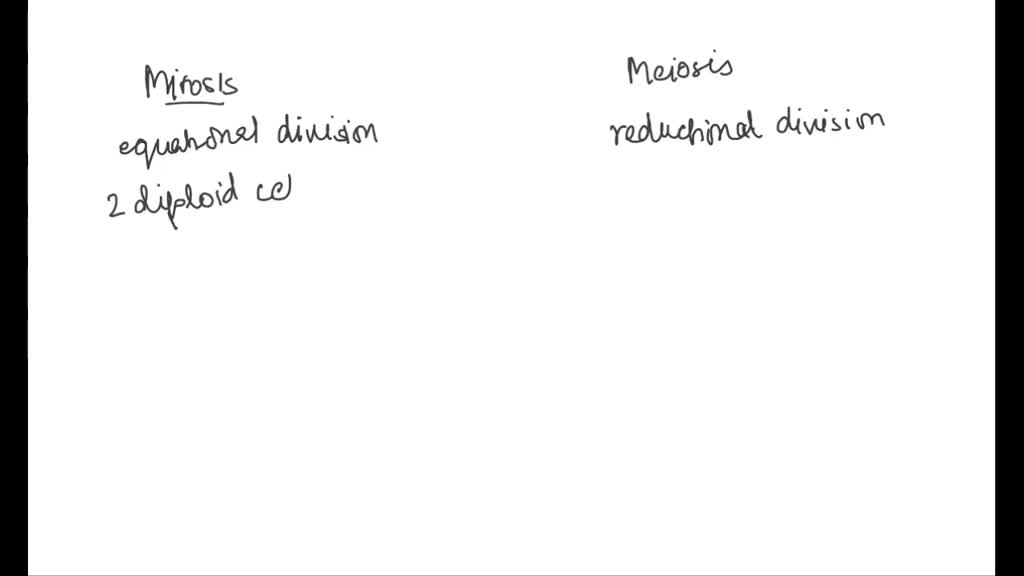 Mitosis
equational division
2 diploid ce
Meiosis
reductional division